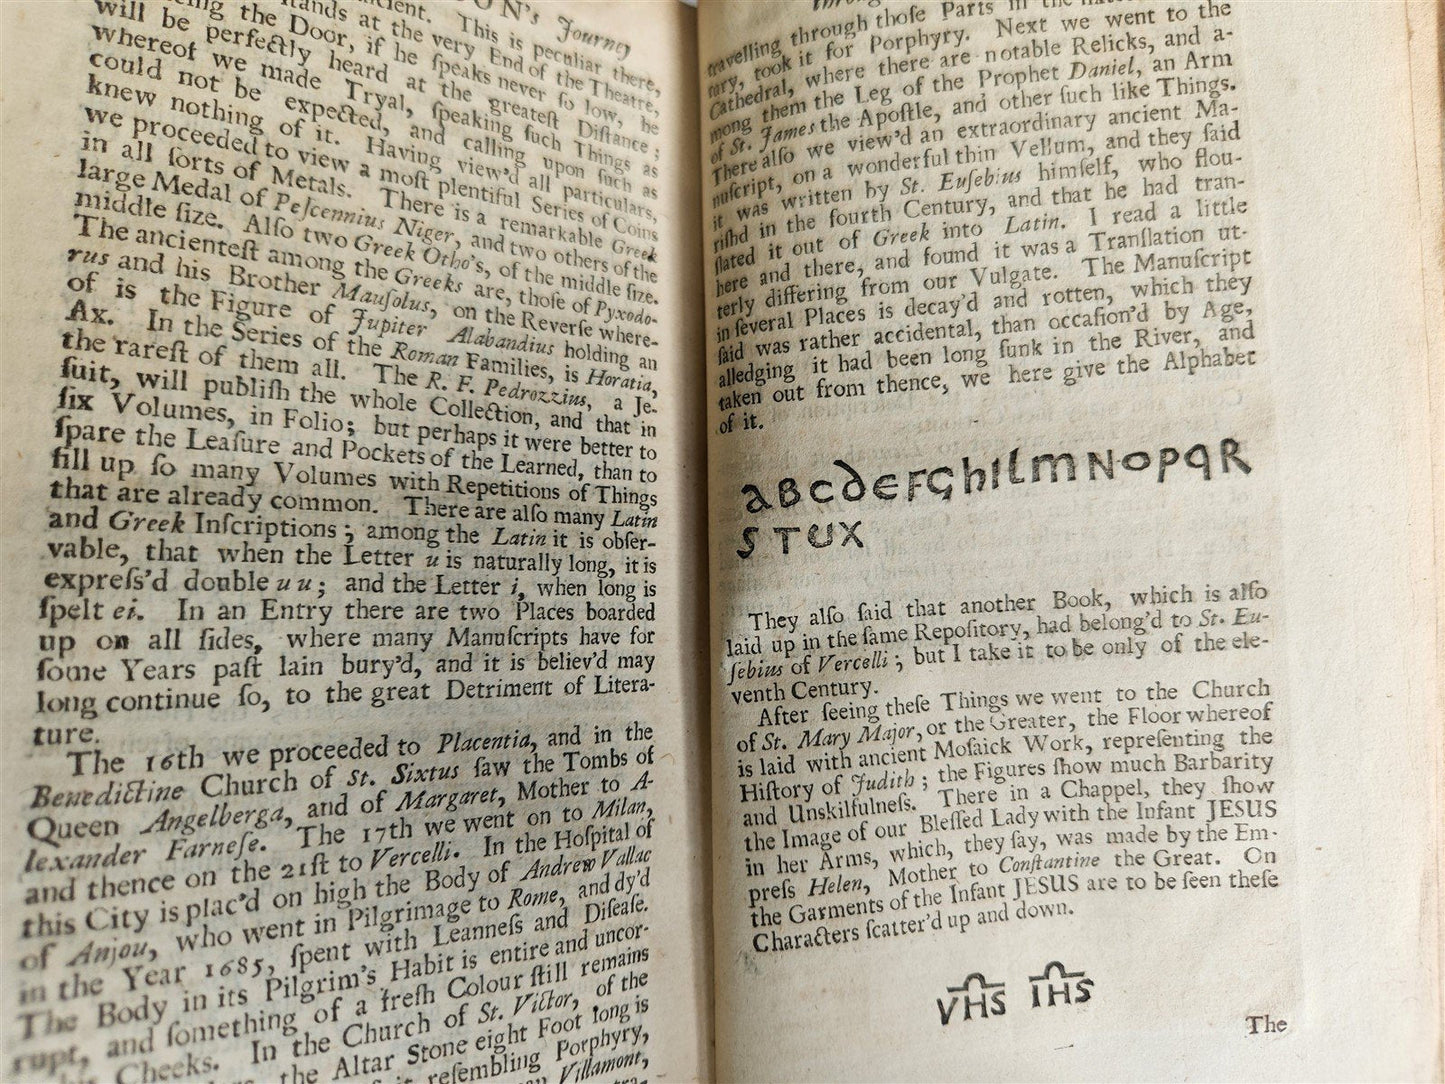 ON's Journey
ancient. This is peculiar there,
the Door, if he ſpeaks never ſo low, he
will be perfectly heard at the greateſt Diſtance;
whereof we made Tryal, ſpeaking ſuch Things as
could not be expected, and calling upon ſuch as
knew nothing of it. Having view'd all particulars,
we proceeded to view a moſt plentiful Series of Coins
in all ſorts of Metals. There is a remarkable Greek
large Medal of Peſcennius Niger, and two others of the
middle ſize. Alſo two Greek Otho's, of the middle ſize.
The ancienteſt among the Greeks are, thoſe of Pyxodo-
rus and his Brother Mauſolus, on the Reverſe where-
of is the Figure of Jupiter Alabandius holding an
Ax. In the Series of the Roman Families, is Horatia,
the rareſt of them all. The R. F. Pedrozzius, a Je-
ſuit, will publiſh the whole Collection, and that in
ſix Volumes, in Folio; but perhaps it were better to
ſpare the Leaſure and Pockets of the Learned, than to
fill up ſo many Volumes with Repetitions of Things
that are already common. There are alſo many Latin
and Greek Inſcriptions; among the Latin it is obſer-
vable, that when the Letter u is naturally long, it is
expreſs'd double u u; and the Letter i, when long is
ſpelt ei. In an Entry there are two Places boarded
up on all ſides, where many Manuſcripts have for
ſome Years paſt lain bury'd, and it is believ'd may
long continue ſo, to the great Detriment of Litera-
ture.
The 16th we proceeded to Placentia, and in the
Benedictine Church of St. Sixtus ſaw the Tombs of
Queen Angelberga, and of Margaret, Mother to A-
lexander Farneſe. The 17th we went on to Milan,
and thence on the 21ſt to Vercelli. In the Hoſpital of
this City is plac'd on high the Body of Andrew Vallac
of Anjou, who went in Pilgrimage to Rome, and dy'd
in the Year 1685, ſpent with Leanneſs and Diſeaſe.
The Body in its Pilgrim's Habit is entire and uncor-
rupt, and ſomething of a freſh Colour ſtill remains
Cheeks. In the Church of St. Victor, of the
the Altar Stone eight Foot long is
reſembling Porphyry,
Villamont,
travelling through thoſe Parts in the
tury, took it for Porphyry. Next we went to the
Cathedral, where there are notable Relicks, and a-
mong them the Leg of the Prophet Daniel, an Arm
of St. James the Apoſtle, and other ſuch like Things.
There alſo we view'd an extraordinary ancient Ma-
nuſcript, on a wonderful thin Vellum, and they ſaid
it was written by St. Euſebius himſelf, who flou-
riſhd in the fourth Century, and that he had tran-
ſlated it out of Greek into Latin. I read a little
here and there, and found it was a Tranſlation ut-
terly differing from our Vulgate. The Manuſcript
in ſeveral Places is decay'd and rotten, which they
ſaid was rather accidental, than occaſion'd by Age,
alledging it had been long ſunk in the River, and
taken out from thence, we here give the Alphabet
of it.
aBCDEFGhILMNOPqR
STUX
They alſo ſaid that another Book, which is alſo
laid up in the ſame Repoſitory, had belong'd to St. Eu-
ſebius of Vercelli; but I take it to be only of the ele-
venth Century.
After ſeeing theſe Things we went to the Church
of St. Mary Major, or the Greater, the Floor whereof
is laid with ancient Moſaick Work, repreſenting the
Hiſtory of Judith; the Figures ſhow much Barbarity
and Unskilfulneſs. There in a Chappel, they ſhow
the Image of our Bleſſed Lady with the Infant JESUS
in her Arms, which, they ſay, was made by the Em-
preſs Helen, Mother to Conſtantine the Great. On
the Garments of the Infant JESUS are to be ſeen theſe
Characters ſcatter'd up and down.
VHS IHS
The